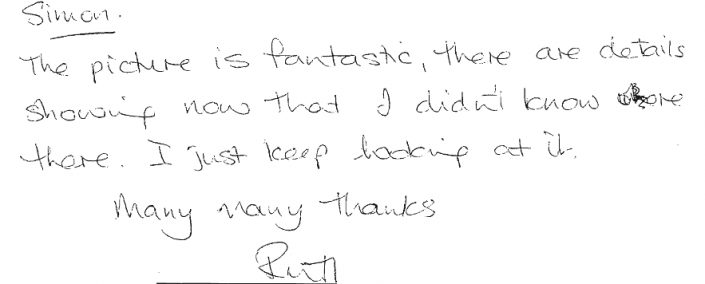 Simon.
The picture is fantastic, there are details
showing now that I didn't know were
there. I just keep looking at it.
Many many thanks
Ruth